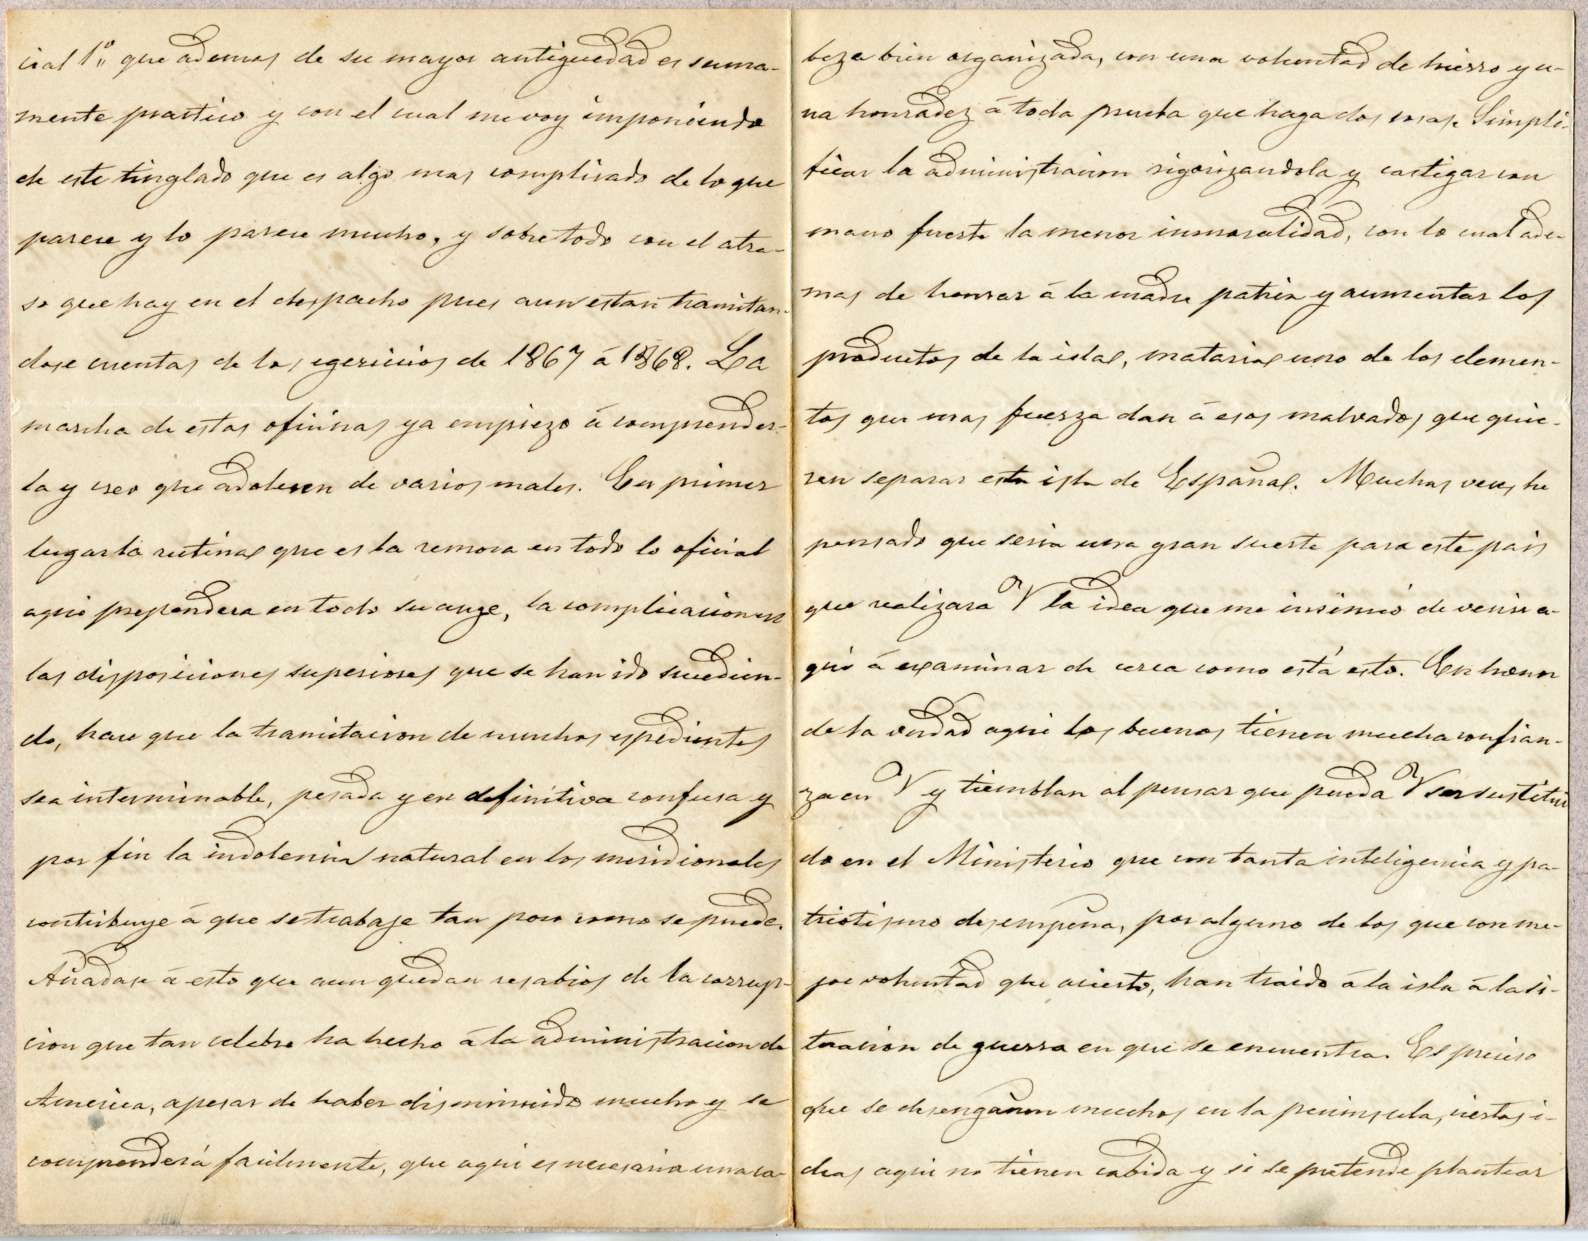 cial 1º que ademas de su mayor antiguedad es suma-
mente practico y con el cual me voy imponiendo
de este tinglado que es algo mas complicado de lo que
parece y lo parece mucho, y sobretodo con el atra-
so que hay en el despacho pues aun estan tramitan-
dose cuentas de los egercicios de 1867 á 1868. La
marcha de estas oficinas ya empiezo á comprender-
la y creo que adolecen de varios males. En primer
lugar la rutina que es la remora en todo lo oficial
aqui prepondera en todo su auge, la complicacion en
las disposiciones superiores que se han ido sucedien-
do, hace que la tramitacion de muchos espedientes
sea interminable, pesada y en definitiva confusa y
por fin la indolencia natural en los meridionales
contribuye á que se trabaje tan poco como se puede.
Añadase á esto que aun quedan resabios de la corrup-
cion que tan celebre ha hecho á la administracion de
America, apesar de haber disminuido mucho y se
comprenderá facilmente, que aqui es necesaria una ca-
beza bien organizada, con una voluntad de hierro y u-
na honradez á toda prueba que haga dos cosas. Simpli-
ficar la administracion rigorizandola y castigar con
mano fuerte la menor inmoralidad, con lo cual ade-
mas de honrar á la madre patria y aumentar los
productos de la isla, mataria uno de los elemen-
tos que mas fuerza dan á esos malvados que quie-
ren separar esta isla de España. Muchas veces he
pensado que seria una gran suerte para este pais
que realizara V la idea que me insinuó de venir a-
qui á examinar de cerca como está esto. En honor
de la verdad aqui los buenos tienen mucha confian-
za en V y tiemblan al pensar que pueda V ser sustitui
do en el Ministerio que con tanta inteligencia y pa-
triotismo desempeña, por alguno de los que con me-
jor voluntad que acierto, han traido á la isla á la si-
tuacion de guerra en que se encuentra. Es preciso
que se desengañen muchos en la peninsula, ciertas i-
deas aqui no tienen cabida y si se pretende plantear